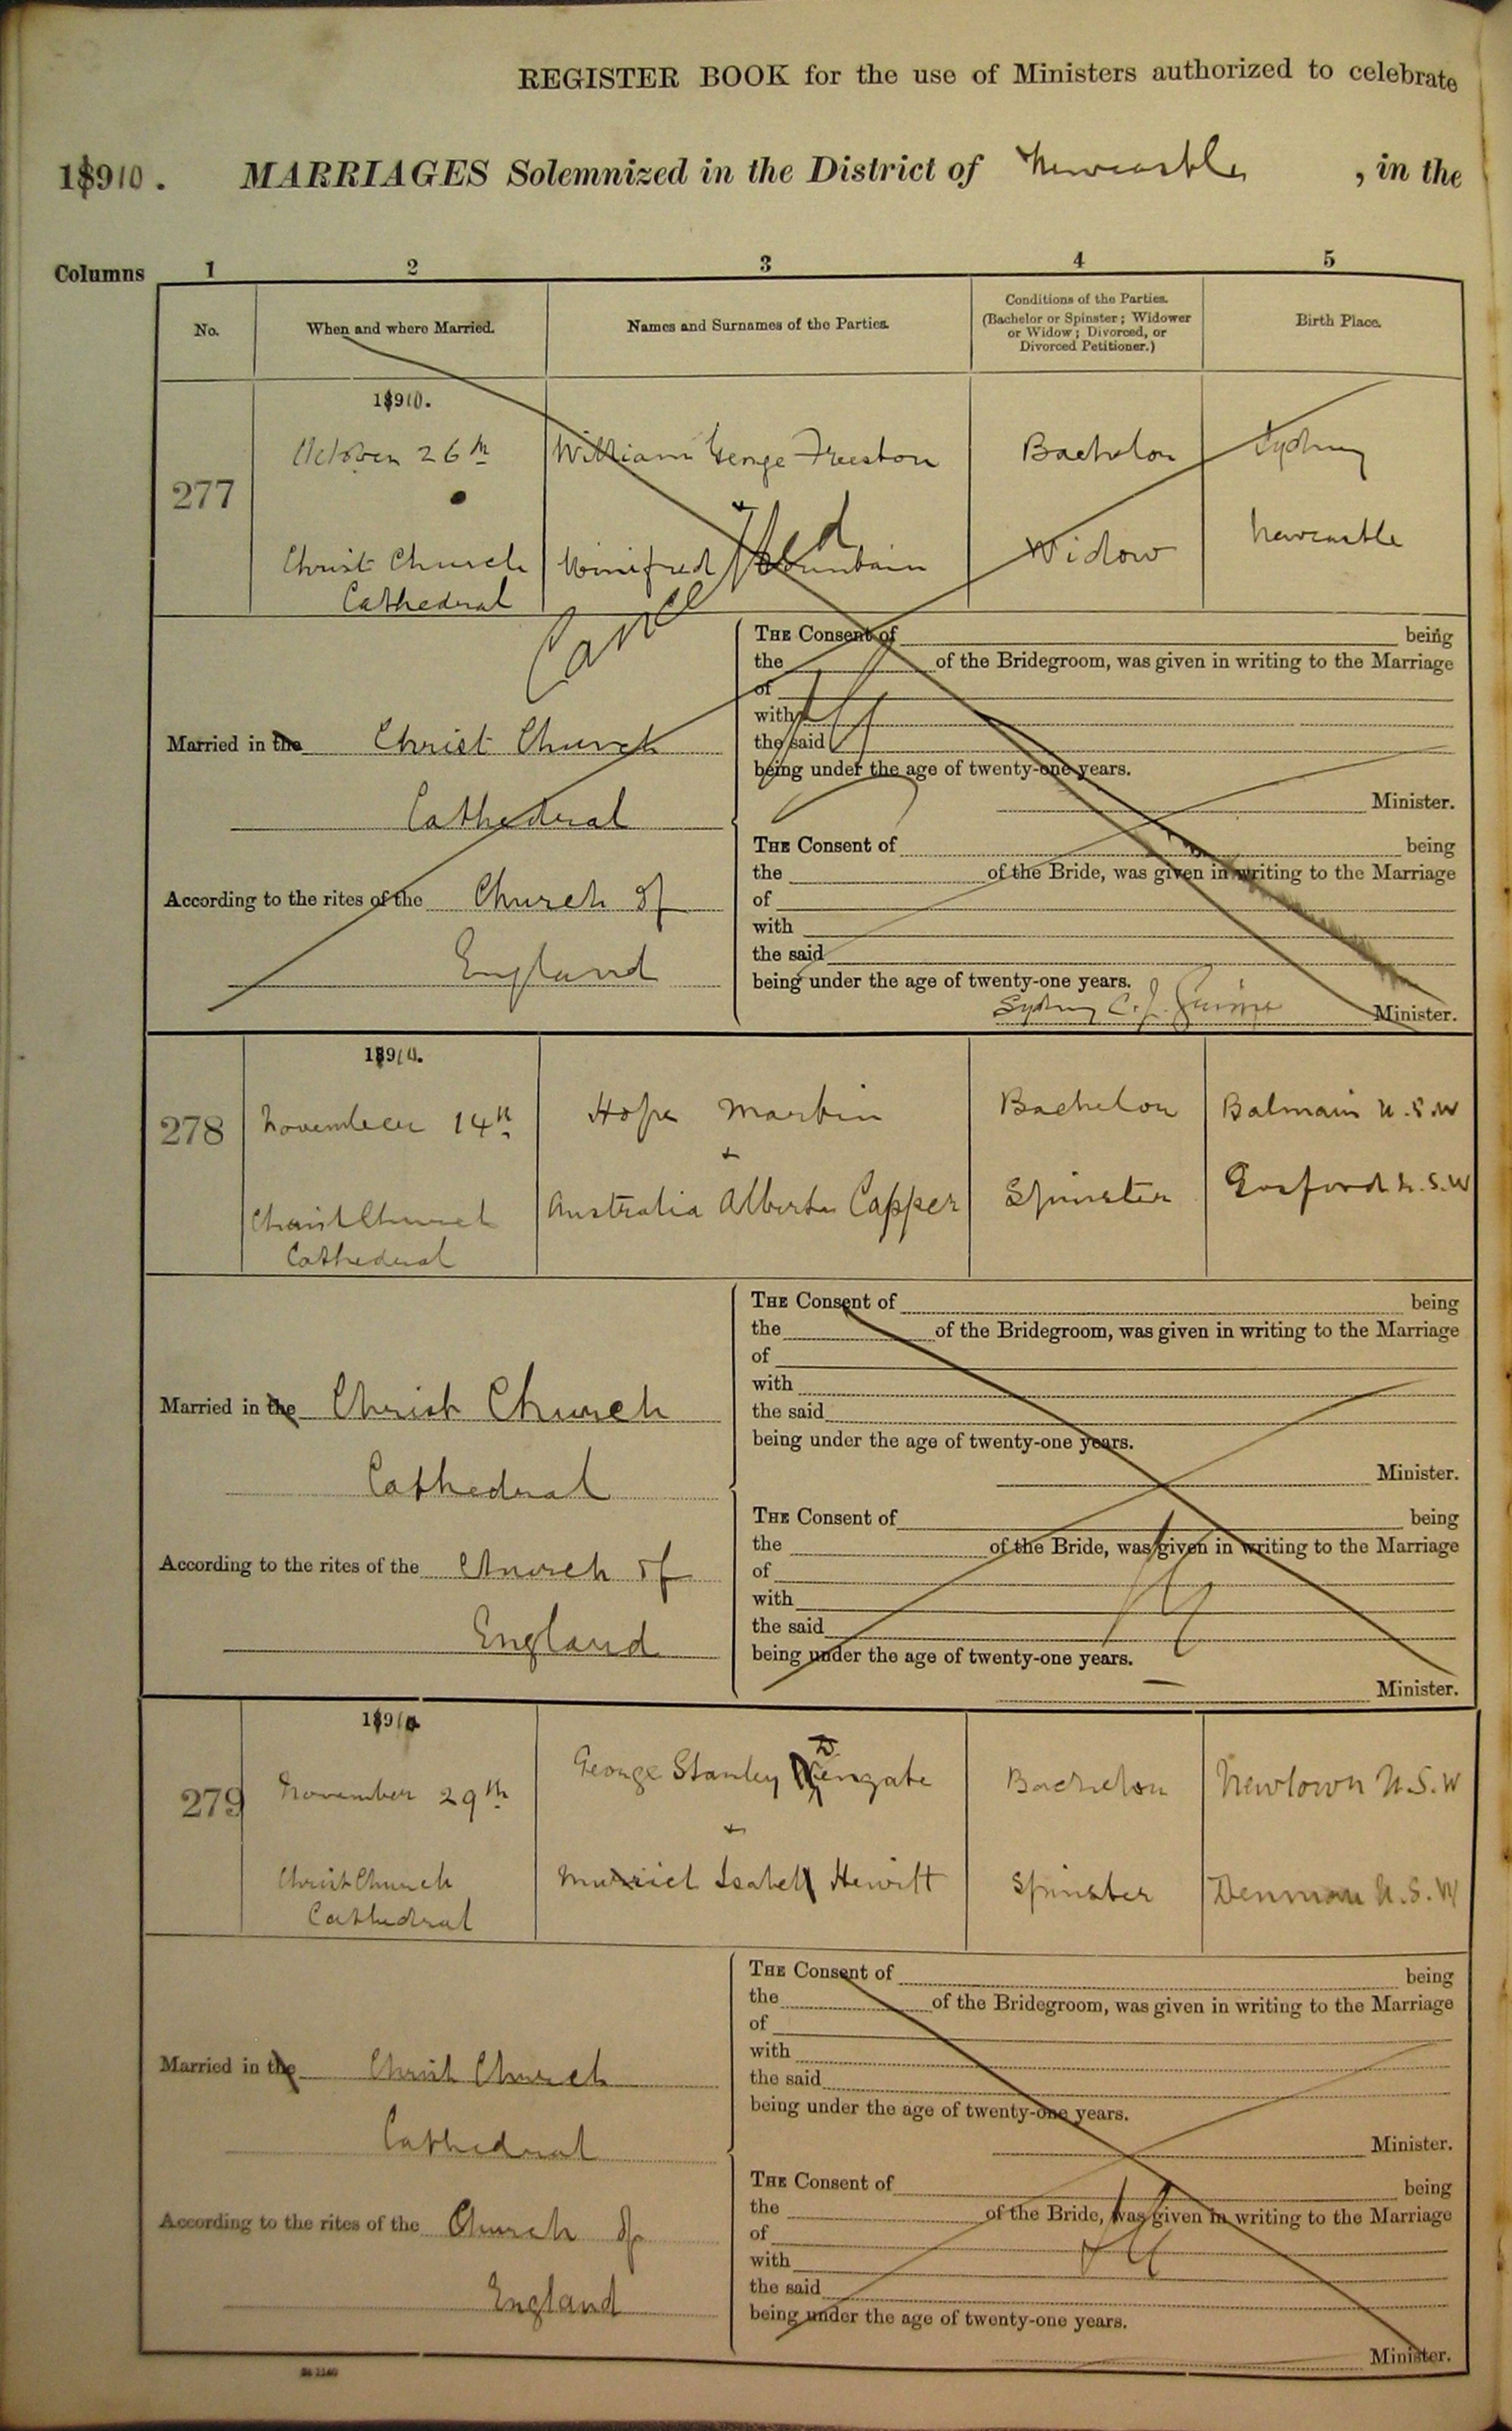 REGISTER BOOK for the use of Ministers authorized to celebrate
1910. MARRIAGES Solemnized in the District of Newcastle, in the
Columns 1 2 3 4 5
No. When and where Married. Names and Surnames of the Parties. Conditions of the Parties. (Bachelor or Spinster; Widower or Widow; Divorced, or Divorced Petitioner.) Birth Place.
1910.
277 October 26th William George Freeston Bachelor Sydney
+
Christ Church Winifred Mountain Widow Newcastle
Cathedral
Cancelled
THE Consent of being
the of the Bridegroom, was given in writing to the Marriage
of
with
the said
Married in the Christ Church
being under the age of twenty-one years.
Cathedral
Minister.
THE Consent of being
the of the Bride, was given in writing to the Marriage
According to the rites of the Church of
of
with
the said
England
being under the age of twenty-one years.
Sydney C. J. Minister.
1910.
278 November 14th Hope Martin Bachelor Balmain N.S.W
+
Christ Church Australia Alberta Capper Spinster Gosford N.S.W
Cathedral
THE Consent of being
the of the Bridegroom, was given in writing to the Marriage
of
with
Married in the Christ Church
the said
being under the age of twenty-one years.
Cathedral
Minister.
THE Consent of being
the of the Bride, was given in writing to the Marriage
According to the rites of the Church of
of
with
the said
England
being under the age of twenty-one years.
Minister.
1910
279 November 29th George Stanley Wengate Bachelor Newtown N.S.W
+
Christ Church Muriel Isabel Hewitt Spinster Denman N.S.W
Cathedral
THE Consent of being
the of the Bridegroom, was given in writing to the Marriage
of
with
Married in the Christ Church
the said
being under the age of twenty-one years.
Cathedral
Minister.
THE Consent of being
the of the Bride, was given in writing to the Marriage
According to the rites of the Church of
of
with
the said
England
being under the age of twenty-one years.
Minister.